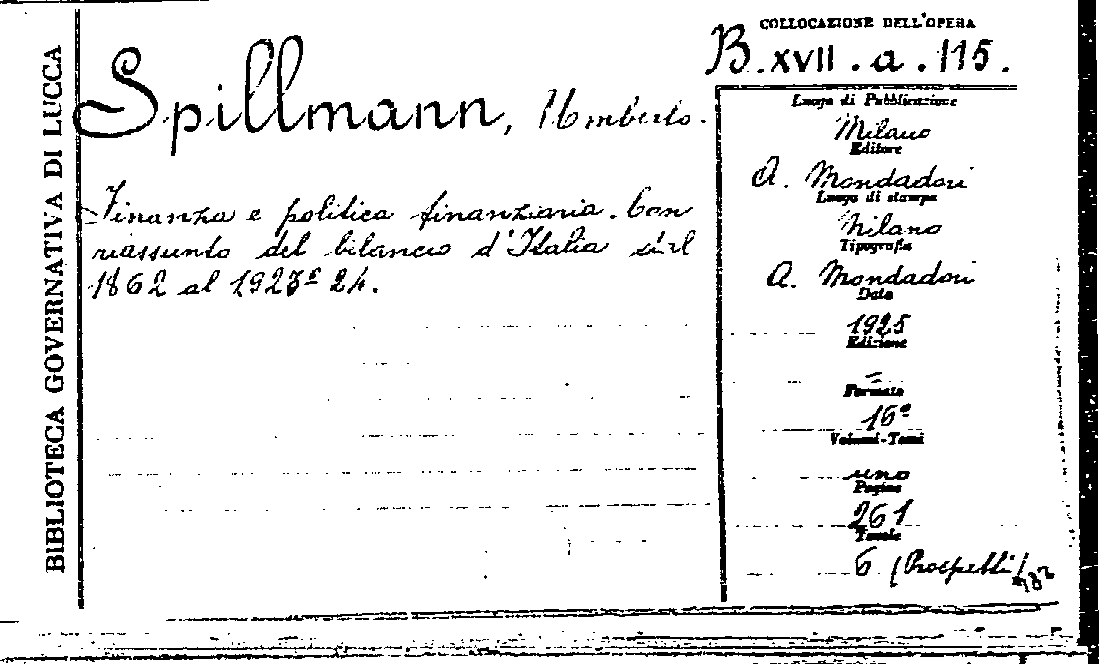 BIBLIOTECA GOVERNATIVA DI LUCCA
COLLOCAZIONE DELL'OPERA
B. XVII. a. 115.
Spillmann, Umberto.
Finanza e politica finanziaria. Con
riassunto del bilancio d'Italia dal
1862 al 1923=24.
Luogo di Pubblicazione
Milano
Editore
A. Mondadori
Luogo di stampa
Milano
Tipografia
A. Mondadori
Data
1925
Edizione
=
Formato
16º
Volumi-Tomi
uno
Pagine
261
Tavole
6 (Prospetti)